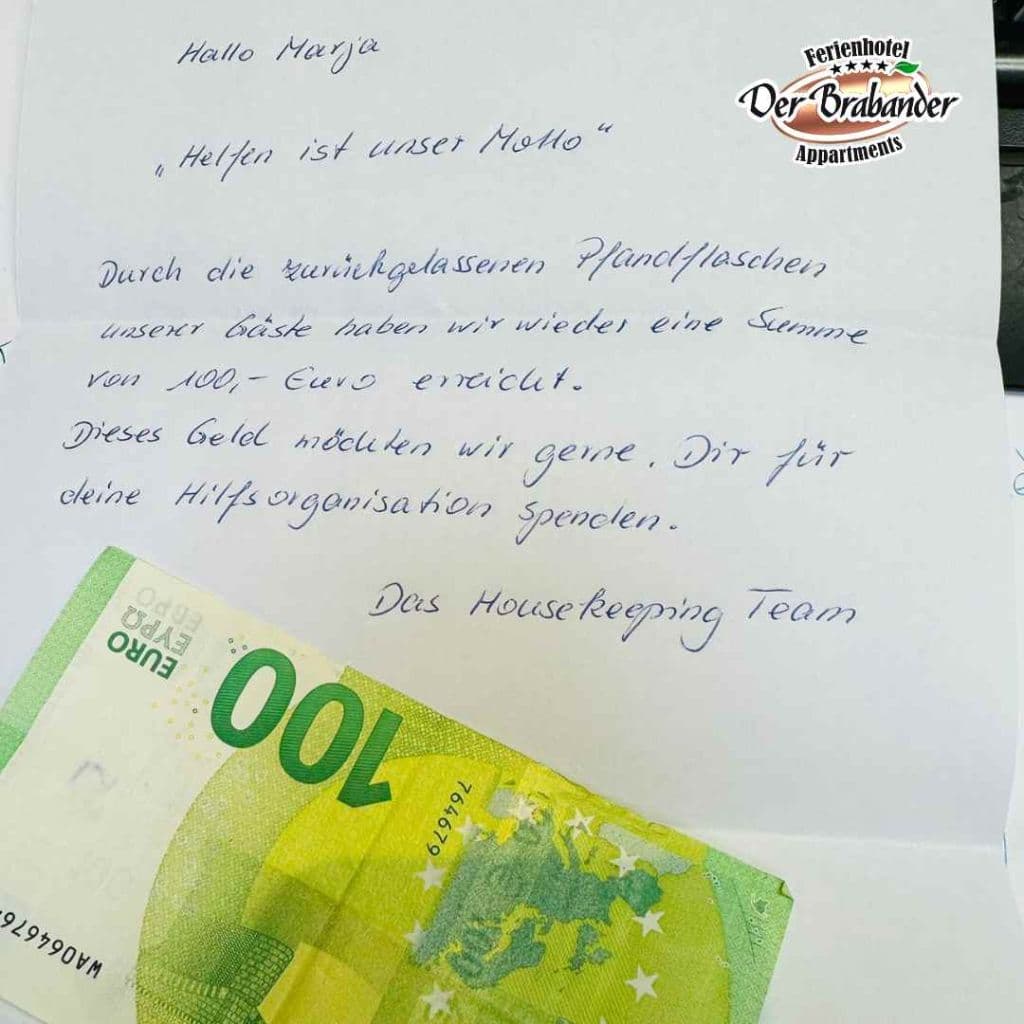 Hallo Marja
Ferienhotel
Der Brabander
Appartments
„Helfen ist unser Motto“
Durch die zurückgelassenen Pfandflaschen
unserer Gäste haben wir wieder eine Summe
von 100,- Euro erreicht.
Dieses Geld möchten wir gerne, Dir für
deine Hilfsorganisation spenden.
Das Housekeeping Team
EURO
ΕΥΡΩ
ЕВРО
100
764679